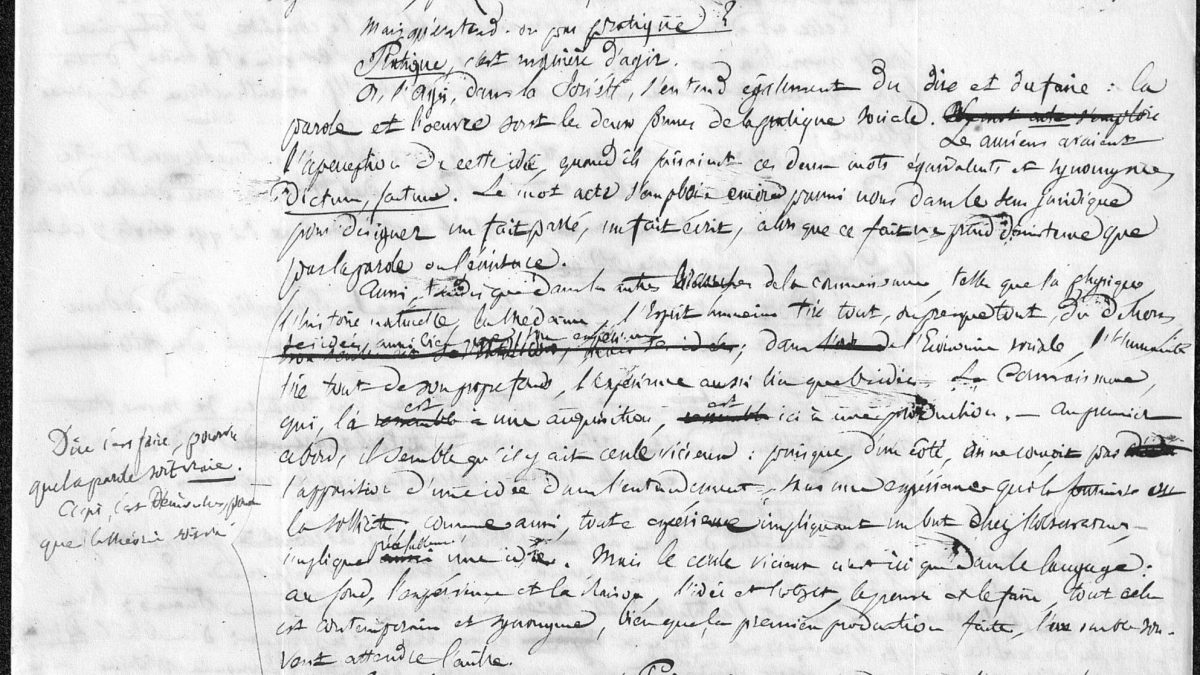 Mais qu'entend-on par pratique ?
Pratique, c'est manière d'agir.
Or, l'agir, dans la Société, s'entend également du dire et du faire : la
parole et l'œuvre sont les deux formes de la pratique sociale.
Les anciens avaient
l'aperception de cette idée, quand ils faisaient ces deux mots équivalents et synonymes,
Dictum, factum. Le mot acte s'emploie encore parmi nous dans le sens juridique
pour désigner un fait passé, un fait écrit, alors que ce fait ne prend d'existence que
par la parole ou l'écriture.
Aussi, tandis que dans les autres branches de la connaissance, telles que la physique,
l'histoire naturelle, la médecine, l'Esprit humain tire tout, ou presque tout du dehors,
ses idées, aussi bien que son expérience
; dans l'Economie sociale, l'Humanité
tire tout de son propre fonds, l'expérience aussi bien que l'idée. La Connaissance,
qui, là est une acquisition, est ici une production. — Au premier
abord, il semble qu'il y ait cercle vicieux : puisque, d'un côté, on ne conçoit pas
l'apparition d'une idée dans l'entendement sans une expérience qui la
la sollicite, comme aussi, toute expérience impliquant un but chez l'observateur
implique une idée. Mais le cercle vicieux n'est ici que dans le langage :
au fond, l'expérience et la Raison, l'idée et l'objet, le penser et le faire, tout cela
est contemporain et synonyme, bien que, la première production faite, l'un semble sou-
vent attendre l'autre.
Dire c'est faire, pourvu
que la parole soit vraie.
Agir, c'est Démontrer, pourvu
que la théorie